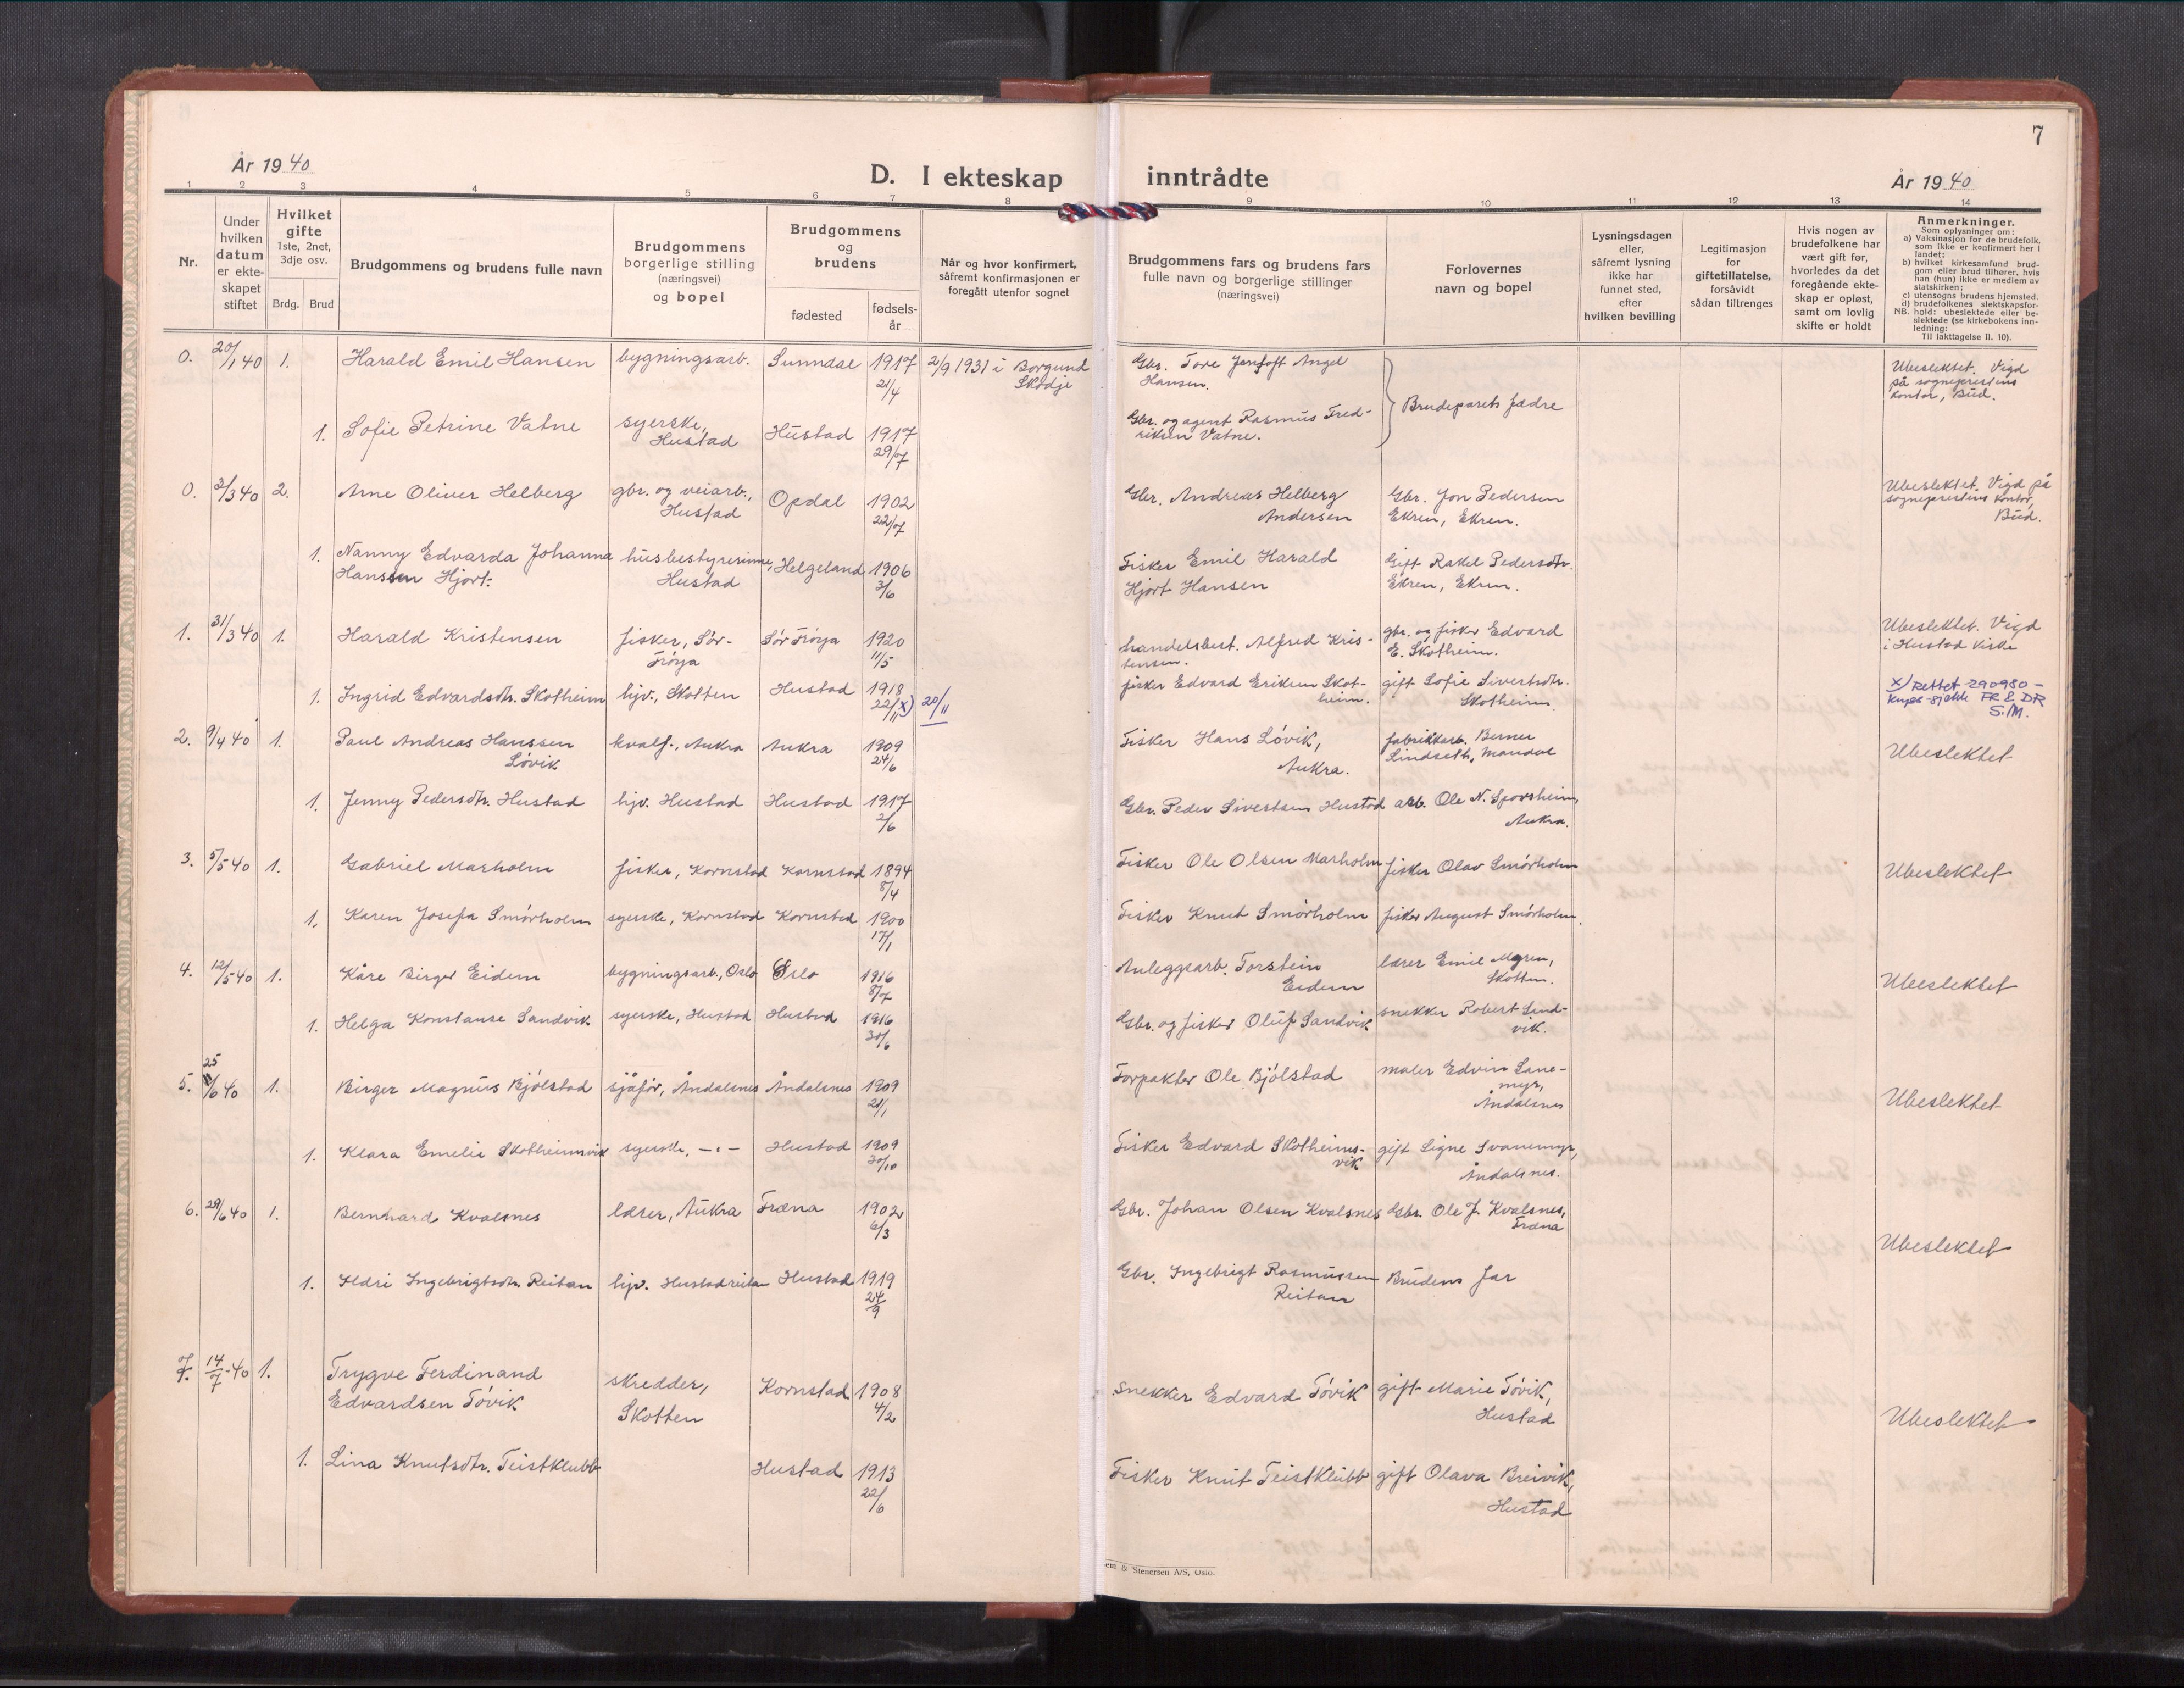 7
År 1940
D. I ekteskap inntrådte
År 1940
1 2 3 4 5 6 7 8 9 10 11 12 13 14
Nr.
Under
hvilken
datum
er ekte-
skapet
stiftet
Hvilket
gifte
1ste, 2net,
3dje osv.
Brdg. Brud
Brudgommens og brudens fulle navn
Brudgommens
borgerlige stilling
(næringsvei)
og bopel
Brudgommens
og
brudens
fødested
fødsels-
år
Når og hvor konfirmert,
såfremt konfirmasjonen er
foregått utenfor sognet
Brudgommens fars og brudens fars
fulle navn og borgerlige stillinger
(næringsvei)
Forlovernes
navn og bopel
Lysningsdagen
eller,
såfremt lysning
ikke har
funnet sted,
efter
hvilken bevilling
Legitimasjon
for
giftetillatelse,
forsåvidt
sådan tiltrenges
Hvis nogen av
brudefolkene har
vært gift før,
hvorledes da det
foregående ekte-
skap er opløst,
samt om lovlig
skifte er holdt
Anmerkninger.
Som oplysninger om:
a) Vaksinasjon for de brudefolk,
som ikke er konfirmert her i
landet;
b) hvilket kirkesamfund brud-
gom eller brud tilhører, hvis
han (hun) ikke er medlem av
statskirken;
c) utensogns brudens hjemsted.
d) brudefolkenes slektskapsfor-
hold: ubeslektede eller be-
slektede (se kirkebokens inn-
ledning:
NB.
Til iakttagelse II. 10).
0. 20/1 40 1. Harald Emil Hansen bygningsarb. Sunndal 1917 21/9 1931 i Borgund
21/4 Skodje
Gbr. Tore Jentoft Angel
Hansen.
Brudeparets fædre
Ubeslektet. Vigd
på sogneprestens
kontor, Bud.
1. Sofie Petrine Vatne syerske, Hustad 1917
Hustad 29/7
Gbr. og agent Rasmus Fred-
riksen Vatne.
0. 2/3 40 2. Arne Oliver Helberg gbr. og veiarb., Opdal 1902
Hustad 22/7
Gbr. Andreas Helberg Gbr. Jon Pedersen
Andersen Ekren, Ekren.
Ubeslektet. Vigd på
sogneprestens kontor,
Bud.
1. Nanny Edvarda Johanna husbestyrerinne, Helgeland 1906
Hanssen Hjort. Hustad 3/6
Fisker Emil Harald Gift Rakel Pedersdtr.
Hjort Hansen Ekren, Ekren.
1. 31/3 40 1. Harald Kristensen fisker, Sör- Sör Fröya 1920
Fröya 11/5
handelsbest. Alfred Kris- gbr. og fisker Edvard
tensen. E. Skotheim.
Ubeslektet. Vigd
i Hustad kirke
1. Ingrid Edvardsdtr. Skotheim hjv., Skotten Hustad 1918
22/11 x) 20/11
fisker Edvard Eriksen Skot- gift Sofie Sivertsdtr.
heim. Skotheim.
x) Rettet 290980 -
FR & DR
S.M.
2. 9/4 40 1. Paul Andreas Hanssen kvalf., Aukra Aukra 1909
Lövik 24/6
Fisker Hans Lövik, fabrikkarb. Berner
Aukra. Lindseth, Mandal
Ubeslektet
1. Jenny Pedersdtr. Hustad hjv. Hustad Hustad 1917
2/6
Gbr. Peder Sivertsen Hustad arb. Ole N. Sporsheim,
Aukra.
3. 5/5 40 1. Gabriel Marholm fisker, Kornstad Kornstad 1894
8/4
Fisker Ole Olsen Marholm fisker Olav Smörholm
Ubeslektet
1. Karen Josefa Smörholm syerske, Kornstad Kornstad 1900
17/1
Fisker Knut Smörholm fisker August Smörholm.
4. 12/5 40 1. Kåre Birger Eidem bygningsarb., Oslo Oslo 1916
8/7
Anleggsarb. Torstein lærer Emil Myren,
Eidem Skotten.
Ubeslektet
1. Helga Konstanse Sandvik syerske, Hustad Hustad 1916
30/6
Gbr. og fisker Oluf Sandvik snekker Robert Sand-
vik.
5. 25/6 40 1. Birger Magnus Bjölstad sjåför, Åndalsnes Åndalsnes 1909
21/1
Forpakter Ole Bjölstad maler Edvin Svane-
myr,
Åndalsnes
Ubeslektet
1. Klara Emelie Skotheimsvik syerske, -"- Hustad 1909
30/10
Fisker Edvard Skotheims- gift Signe Svanemyr,
vik Åndalsnes.
6. 29/6 40 1. Bernhard Kvalsnes lærer, Aukra Fræna 1902
6/3
Gbr. Johan Olsen Kvalsnes Gbr. Ole J. Kvalsnes,
Fræna
Ubeslektet
1. Ildri Ingebrigtsdtr. Reitan hjv. Hustadreitan Hustad 1919
24/9
Gbr. Ingebrigt Rasmussen Brudens far
Reitan
7. 14/7-40 1. Trygve Ferdinand skredder, Kornstad 1908
Edvardsen Tövik Skotten 4/2
Snekker Edvard Tövik gift Marie Tövik,
Hustad
Ubeslektet
1. Lina Knutsdtr. Teistklubb Hustad 1913
22/6
Fisker Knut Teistklubb gift Olava Breivik,
Hustad
em & Stenersen A/S, Oslo.